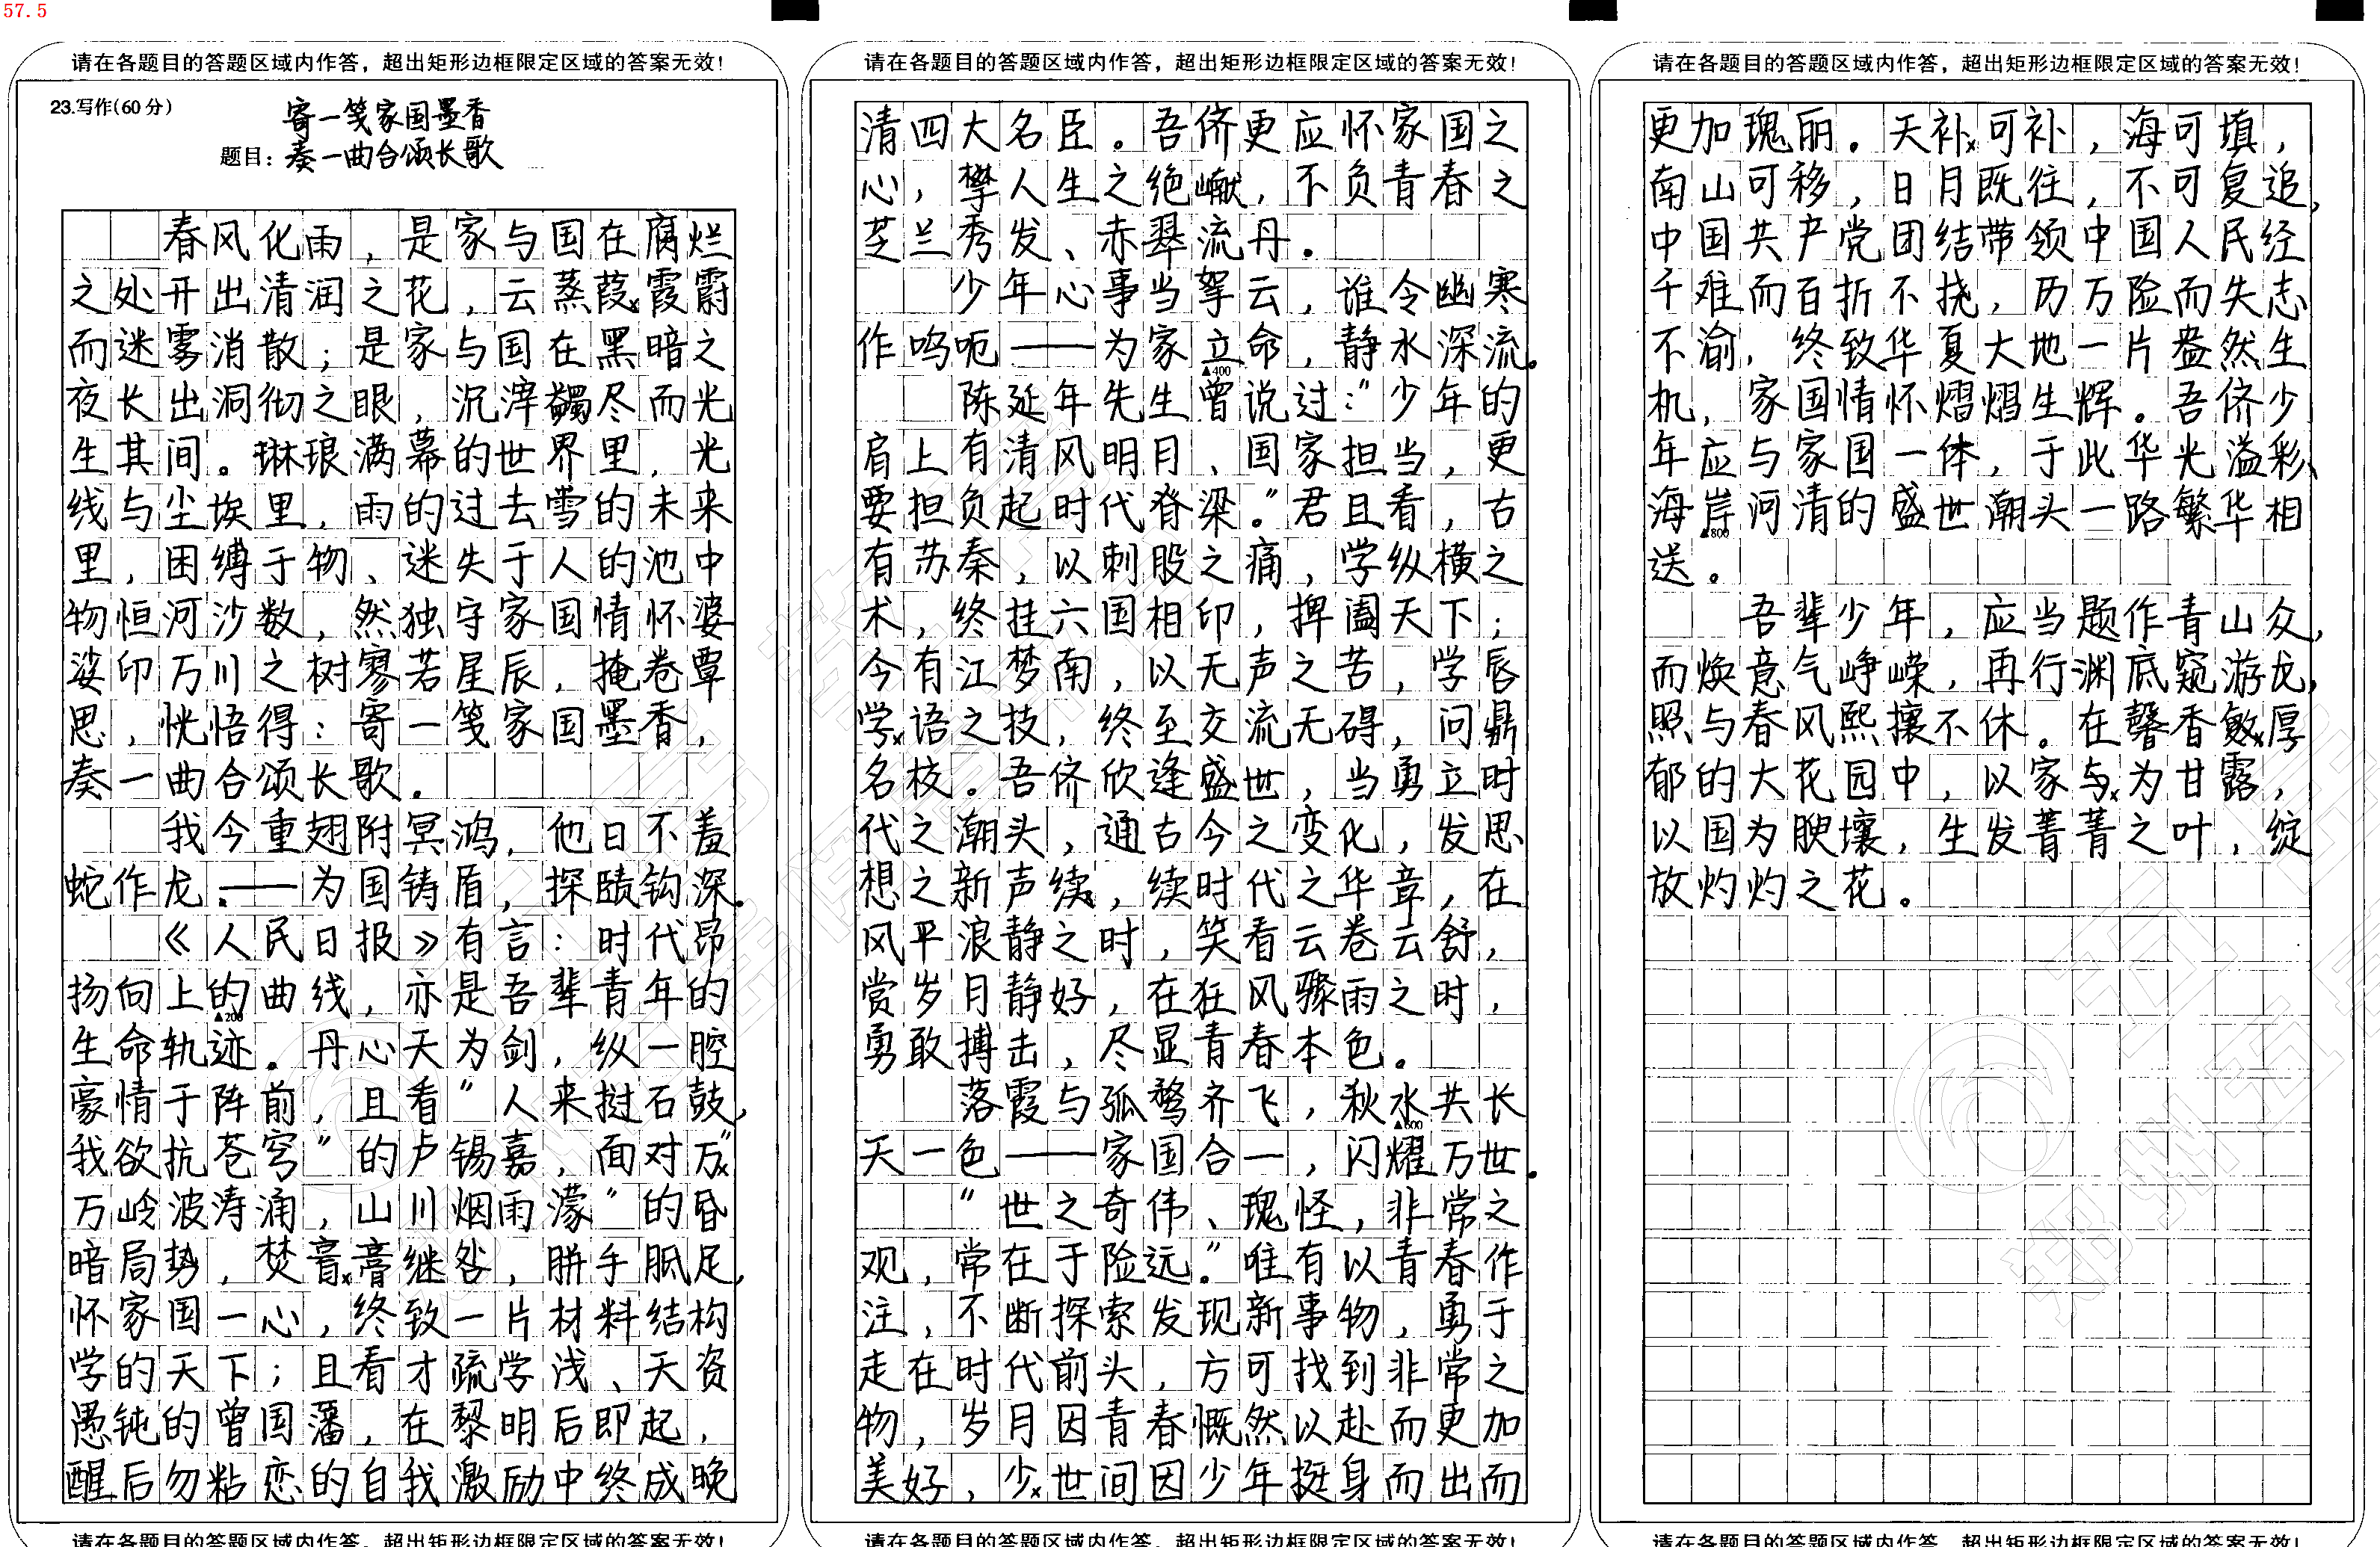 57.5
请在各题目的答题区域内作答，超出矩形边框限定区域的答案无效！
23.写作(60分)
寄一笺家国墨香
题目：奏一曲合颂长歌
春风化雨，是家与国在腐烂
之处开出清润之花，云蒸葭霞霨
而迷雾消散；是家与国在黑暗之
夜长出洞彻之眼，沉滓蠲尽而光
生其间。琳琅满幕的世界里，光
线与尘埃里，雨的过去雪的未来
里，困缚于物、迷失于人的池中
物恒河沙数，然独守家国情怀婆
娑印万川之树寥若星辰，掩卷覃
思，恍悟得：寄一笺家国墨香，
奏一曲合颂长歌。
我今重翅附冥鸿，他日不羞
蛇作龙.——为国铸盾，探赜钩深。
《人民日报》有言：时代昂
扬向上的曲线，亦是吾辈青年的
▲200
生命轨迹。丹心天为剑，纵一腔
豪情于阵前，且看“人来挝石鼓，
我欲抗苍穹”的卢锡嘉，面对万“
万岭波涛涌，山川烟雨濛”的昏
暗局势，焚膏膏继咎，胼手胝足，
怀家国一心，终致一片材料结构
学的天下；且看才疏学浅、天资
愚钝的曾国藩，在黎明后即起，
醒后勿粘恋的自我激励中终成晚
请在各题目的答题区域内作答，超出矩形边框限定区域的答案无效！
请在各题目的答题区域内作答，超出矩形边框限定区域的答案无效！
清四大名臣。吾侪更应怀家国之
心，攀人生之绝巘，不负青春之
芝兰秀发、赤翠流丹。
少年心事当拏云，谁令幽寒
作呜呃——为家立命，静水深流。
▲400
陈延年先生曾说过：“少年的
肩上有清风明月、国家担当，更
要担负起时代脊梁。”君且看，古
有苏秦，以刺股之痛，学纵横之
术，终挂六国相印，捭阖天下；
今有江梦南，以无声之苦，学唇
学语之技，终至交流无碍，问鼎
名校。吾侪欣逢盛世，当勇立时
代之潮头，通古今之变化，发思
想之新声续，续时代之华章，在
风平浪静之时，笑看云卷云舒，
赏岁月静好，在狂风骤雨之时，
勇敢搏击，尽显青春本色。
落霞与孤鹜齐飞，秋水共长
▲600
天一色——家国合一，闪耀万世。
“世之奇伟、瑰怪，非常之
观，常在于险远。”唯有以青春作
注，不断探索发现新事物，勇于
走在时代前头，方可找到非常之
物，岁月因青春慨然以赴而更加
美好，少世间因少年挺身而出而
请在各题目的答题区域内作答，超出矩形边框限定区域的答案无效！
请在各题目的答题区域内作答，超出矩形边框限定区域的答案无效！
更加瑰丽。天补可补，海可填，
南山可移，日月既往，不可复追，
中国共产党团结带领中国人民经
千难而百折不挠，历万险而失志
不渝，终致华夏大地一片盎然生
机，家国情怀熠熠生辉。吾侪少
年应与家国一体，于此华光溢彩、
海岸河清的盛世潮头一路繁华相
▲800
送。
吾辈少年，应当题作青山众，
而焕意气峥嵘，再行渊底窥游龙，
照与春风熙攘不休。在馨香敻厚
郁的大花园中，以家与为甘露，
以国为腴壤，生发菁菁之叶，绽
放灼灼之花。
请在各题目的答题区域内作答，超出矩形边框限定区域的答案无效！